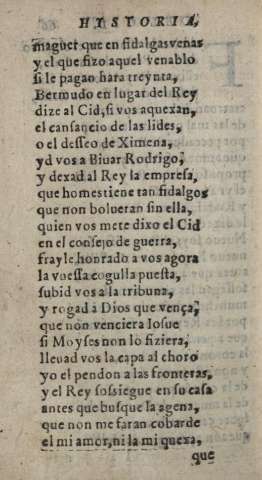 HYSTORIA,
maguer que en fidalgas venas
y el que fizo aquel venablo
si le pagao hara treynta,
Bermudo en lugar del Rey
dize al Cid, si vos aquexan,
el cansancio de las lides,
o el desseo de Ximena,
yd vos a Biuar Rodrigo,
y dexad al Rey la empresa,
que homes tiene tan fidalgos
que non bolueran sin ella,
quien vos mete dixo el Cid
en el consejo de guerra,
frayle honrado a vos agora
la vuessa cogulla puesta,
subid vos a la tribuna,
y rogad a Dios que vença,
que non venciera Iosue
si Moyses non lo fiziera,
lleuad vos la capa al choro
yo el pendon a las fronteras,
y el Rey sossiegue en su casa
antes que busque la agena,
que non me faran cobarde
el mi amor, ni la mi quexa,
que